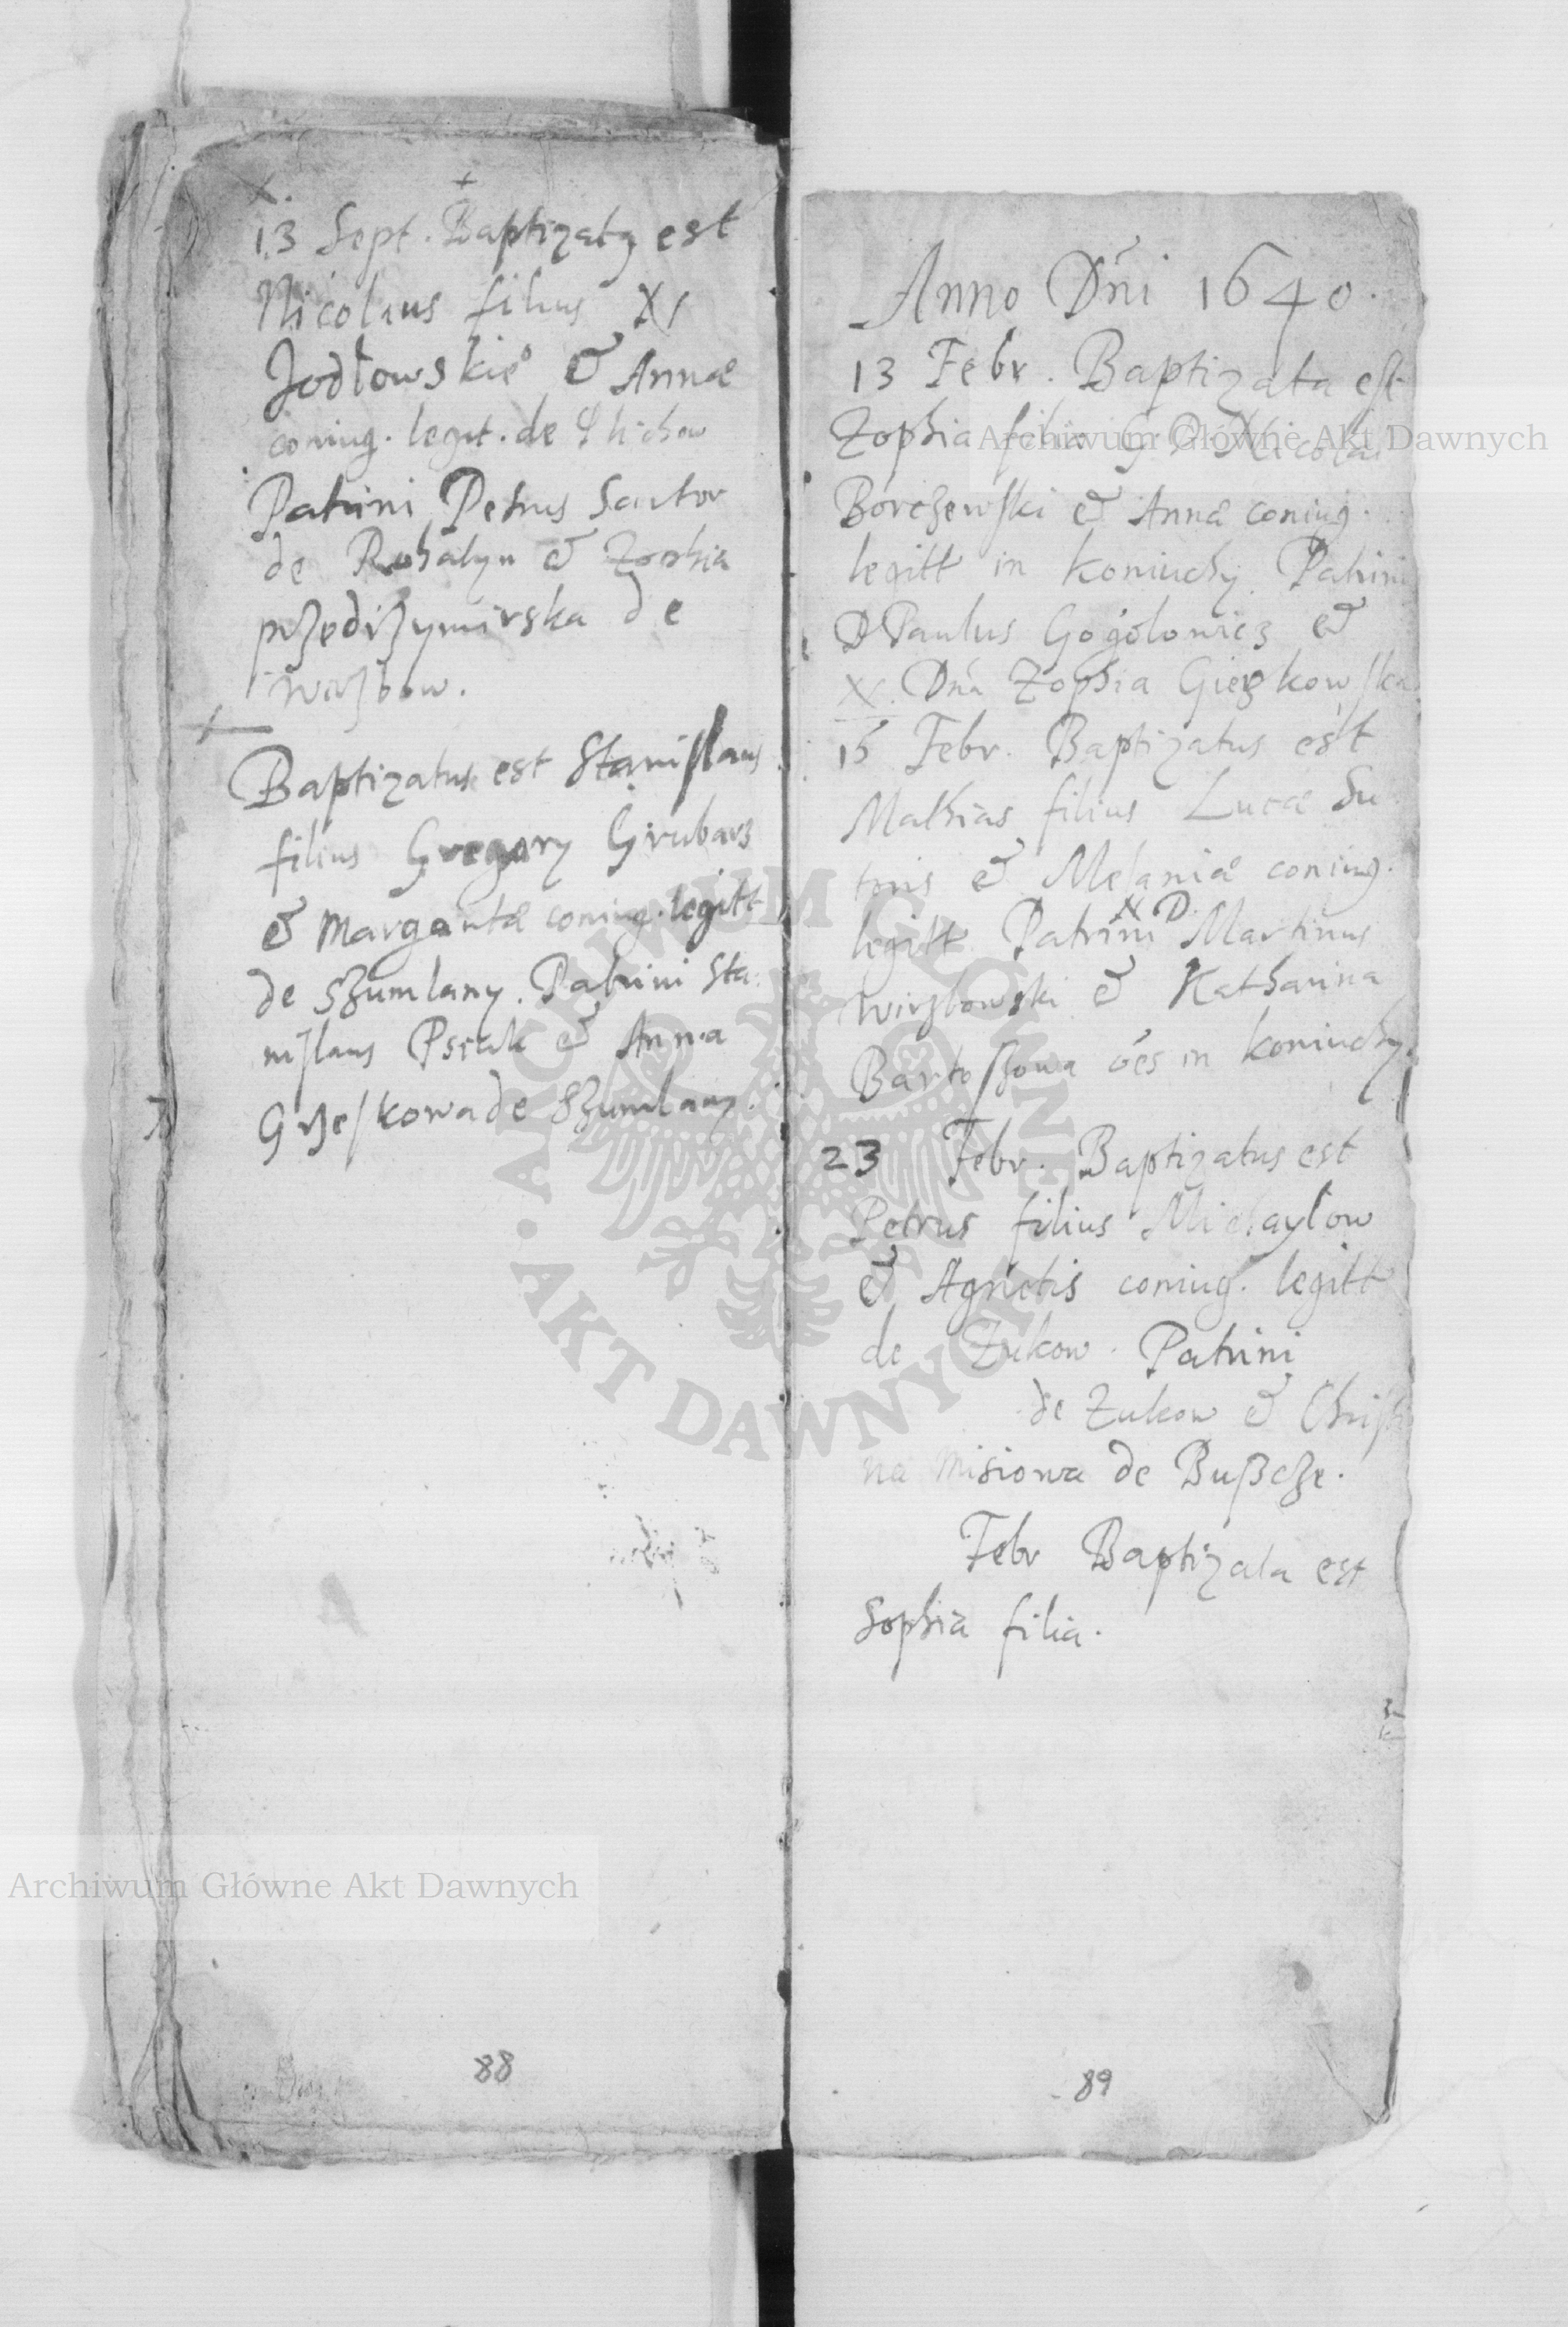 13 Sept. Baptizatꝰ est
Nicolaus filius
Jodłowskie° & Annæ
coniug. legit. de
Patrini Petrus Sartor
de Rohatyn & Zophia
przedrzymirska de
wirzbow.
Baptizatus est Stanislaus
filius Gregory Grubarz
& Margaritæ coniug. legitt
de Szumlany. Patrini Sta:
nislaus Psiak & Anna
Grzeskowa de Szumlany.
88
Anno Dńi 1640.
13 Febr. Baptizata est
Zophia filia G D Nicolai
Borczewski & Annæ coniug.
legitt in koniuchy. Patrini
D Paulus Gogolowicz &
Dńa Zophia
15 Febr. Baptizatus est
Mathias filius Lucæ Su
toris & Melaniæ coniug.
N D.
legitt Patrini Martinus
wirzbowski & Katharina
Bartoszowa óes in koniuchy.
23 Febr. Baptizatus est
Petrus filius Michaylow
& Agnetis coniug. legitt
de Zukow. Patrini
de Zukow & Christi
na Misiowa de Buszcze.
Febr Baptizata est
Sophia filia.
89
Archiwum Główne Akt Dawnych
Archiwum Główne Akt Dawnych
· ARCHIWUM GŁÓWNE · AKT DAWNYCH